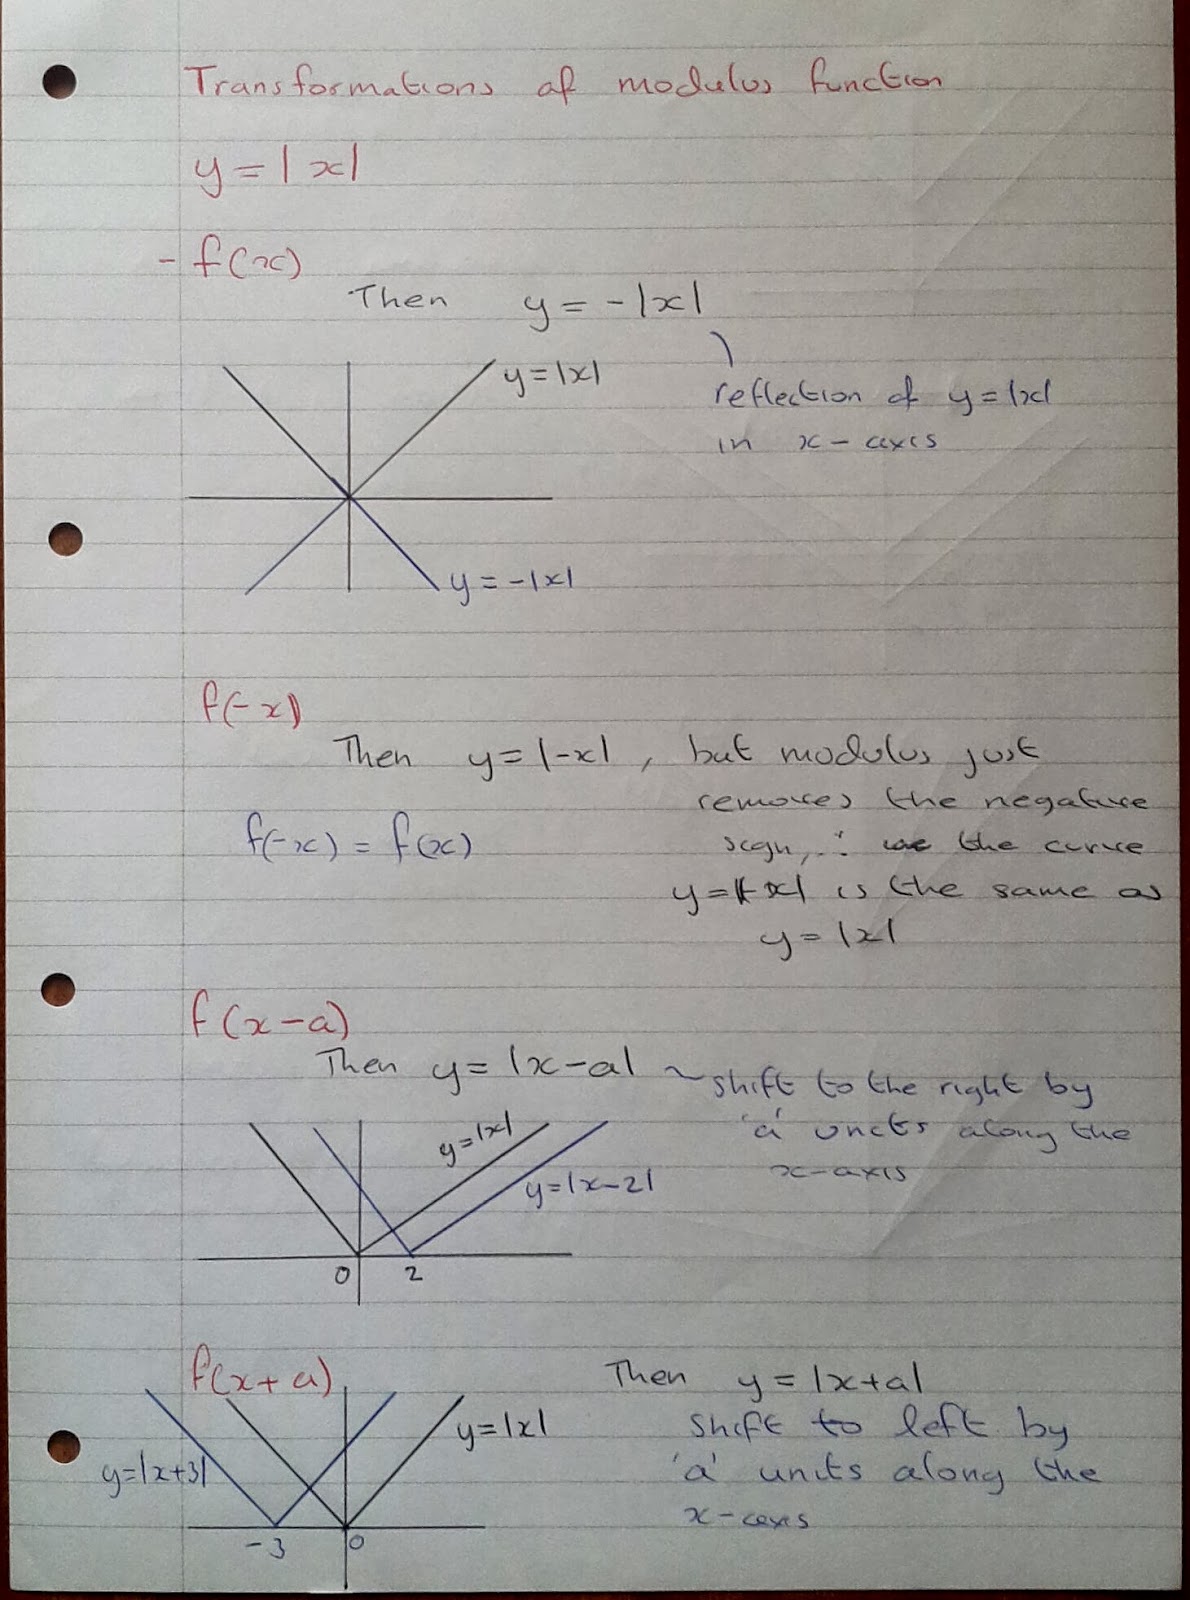 Transformations of modulus function
y = |x|
- f(x)
Then y = -|x|
y = |x|
reflection of y = |x|
in x - axis
y = -|x|
f(-x)
Then y = |-x| , but modulus just
removes the negative
f(-x) = f(x)
sign, ∴ the curve
y = |-x| is the same as
y = |x|
f(x - a)
Then y = |x - a| ~ shift to the right by
'a' units along the
x-axis
y = |x|
y = |x - 2|
0 2
f(x + a)
Then y = |x + a|
shift to left by
'a' units along the
x-axis
y = |x|
y = |x + 3|
-3 0